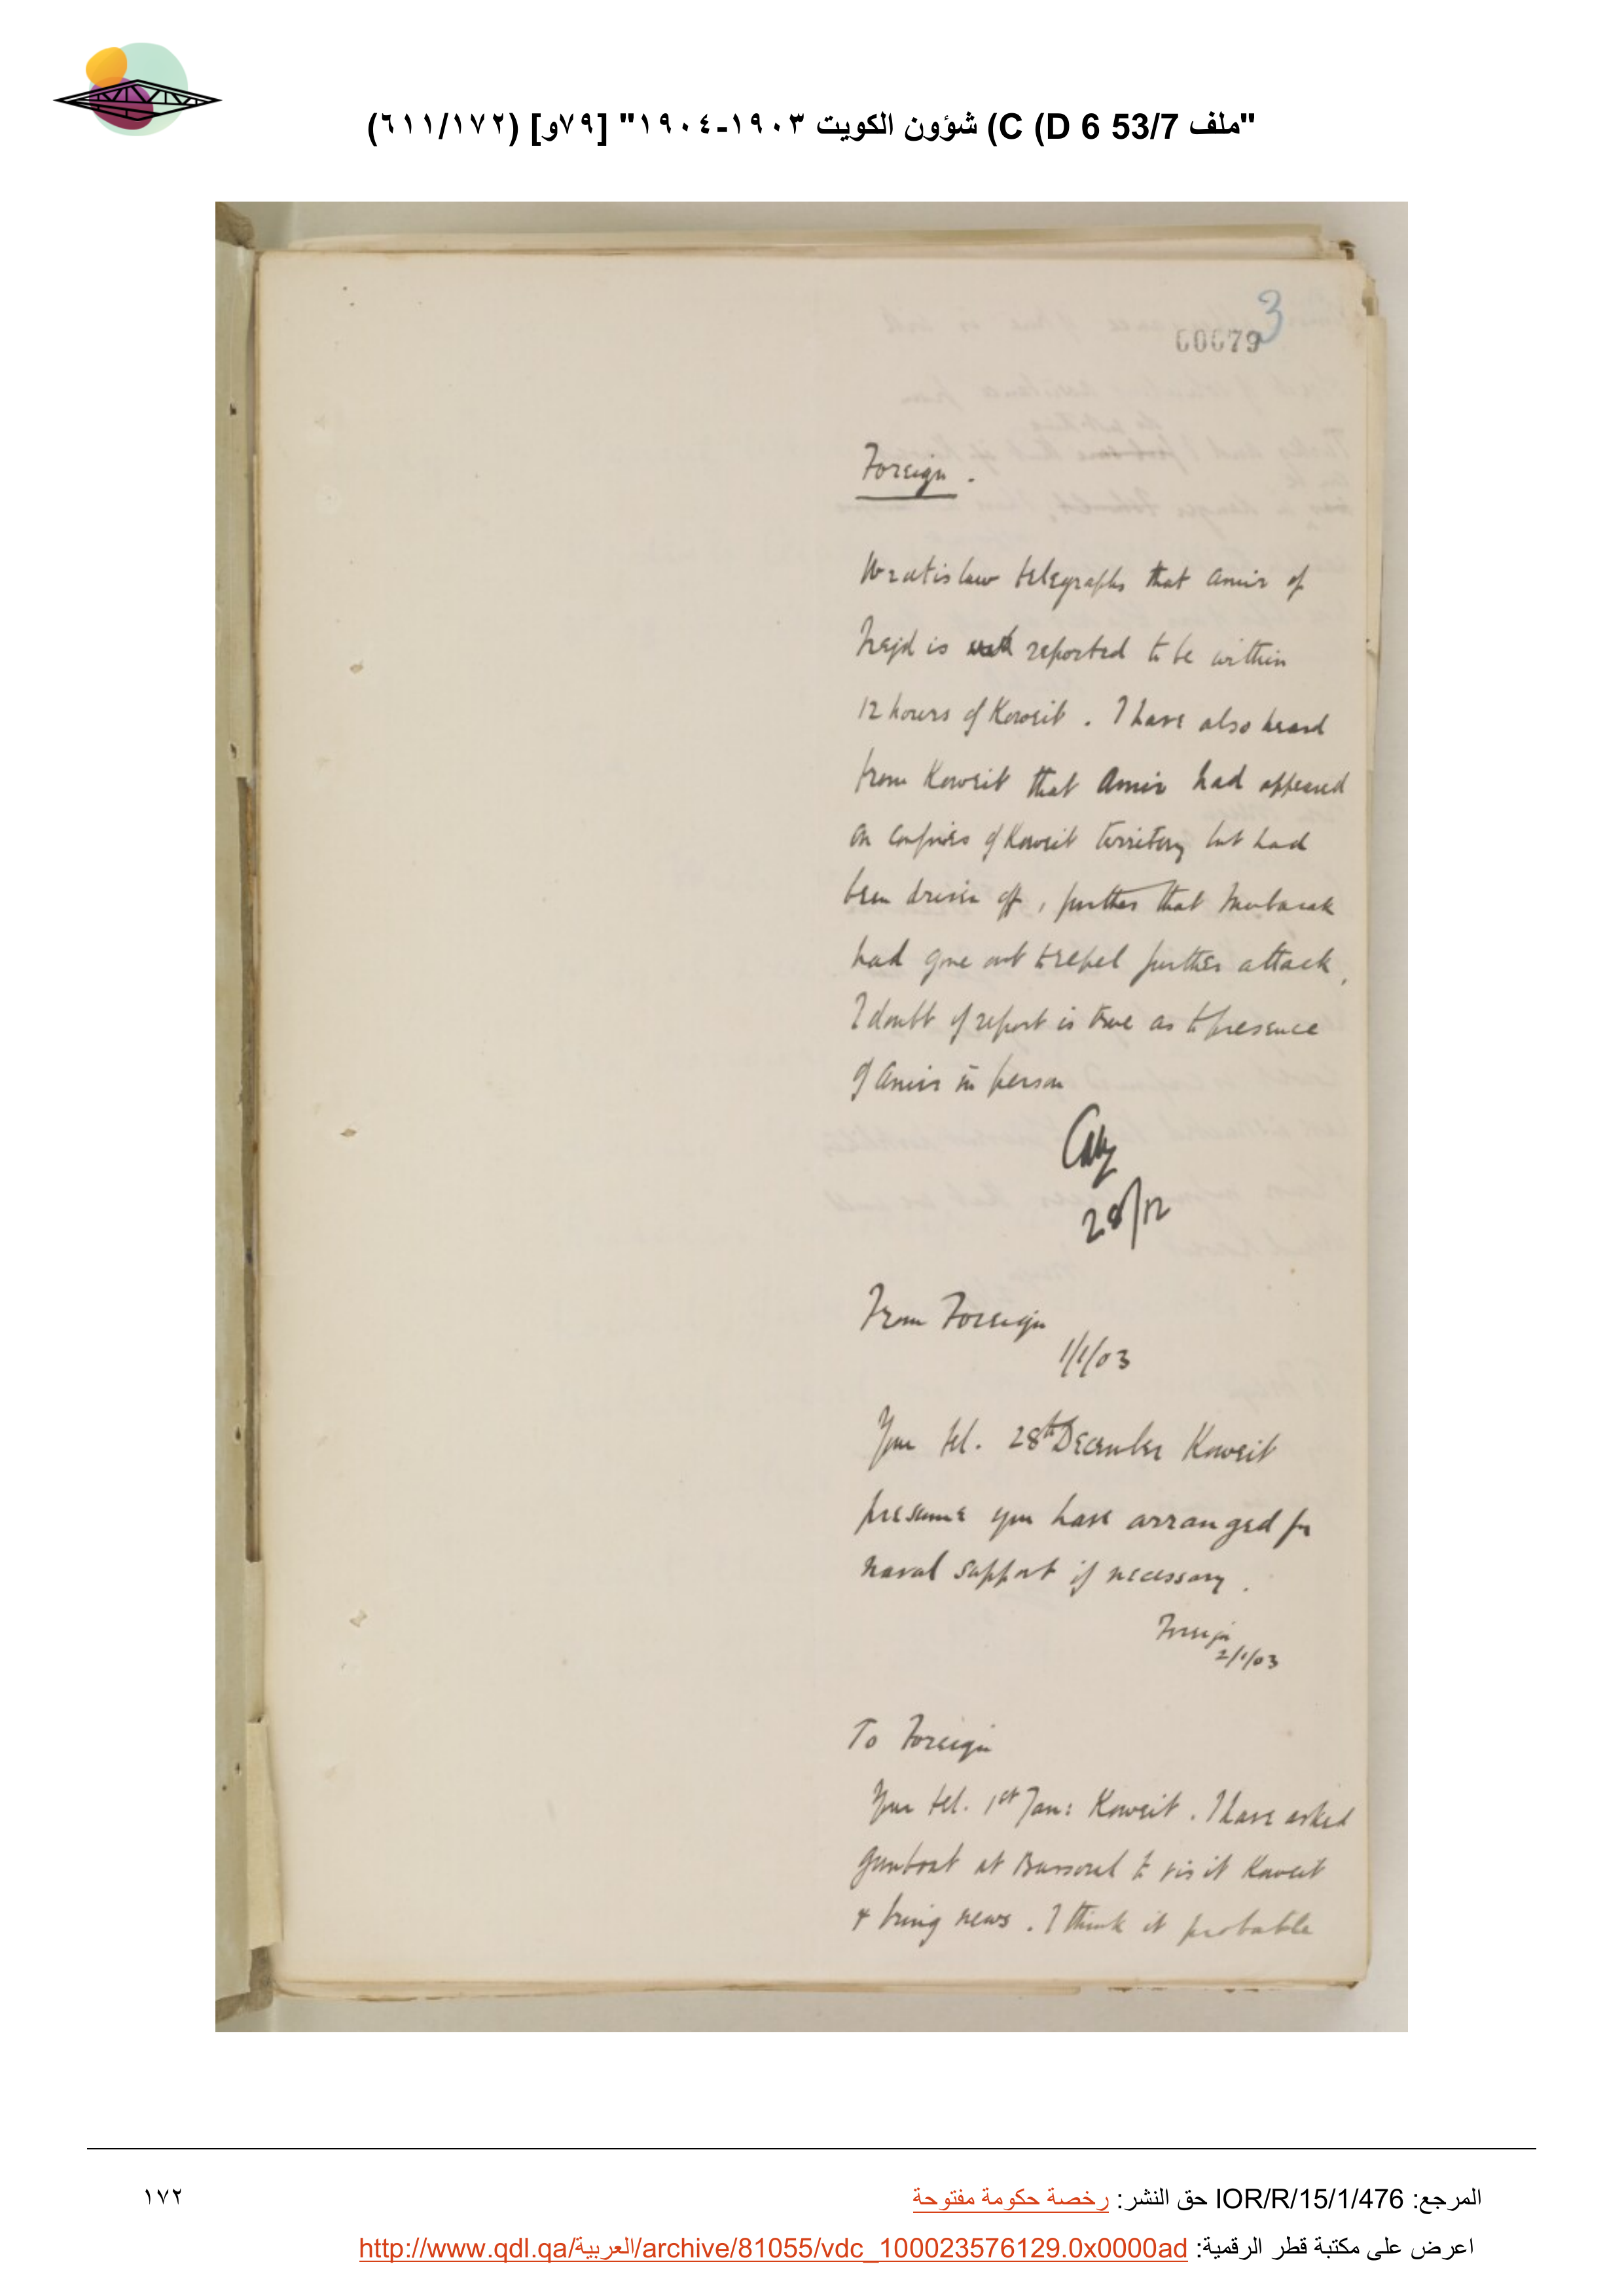 "ملف 53/7 D 6) C) شؤون الكويت ١٩٠٣-١٩٠٤" [٧٩و] (٦١١/١٧٢)
3
00079
Foreign.
Wratislaw telegraphs that Amir of
Nejd is reported to be within
12 hours of Koweit. I have also heard
from Koweit that Amir had appeared
on confines of Koweit territory but had
been driven off, further that Mubarak
had gone out to repel further attack,
I doubt if report is true as to presence
of Amir in person
28/12
From Foreign
1/1/03
Your tel. 28th December Koweit
presume you have arranged for
naval support if necessary.
Foreign
2/1/03
To Foreign
Your tel. 1st Jan: Koweit. I have asked
gunboat at Bussorah to visit Koweit
& bring news. I think it probable
المرجع: IOR/R/15/1/476 حق النشر: رخصة حكومة مفتوحة
١٧٢
اعرض على مكتبة قطر الرقمية: http://www.qdl.qa/العربية/archive/81055/vdc_100023576129.0x0000ad